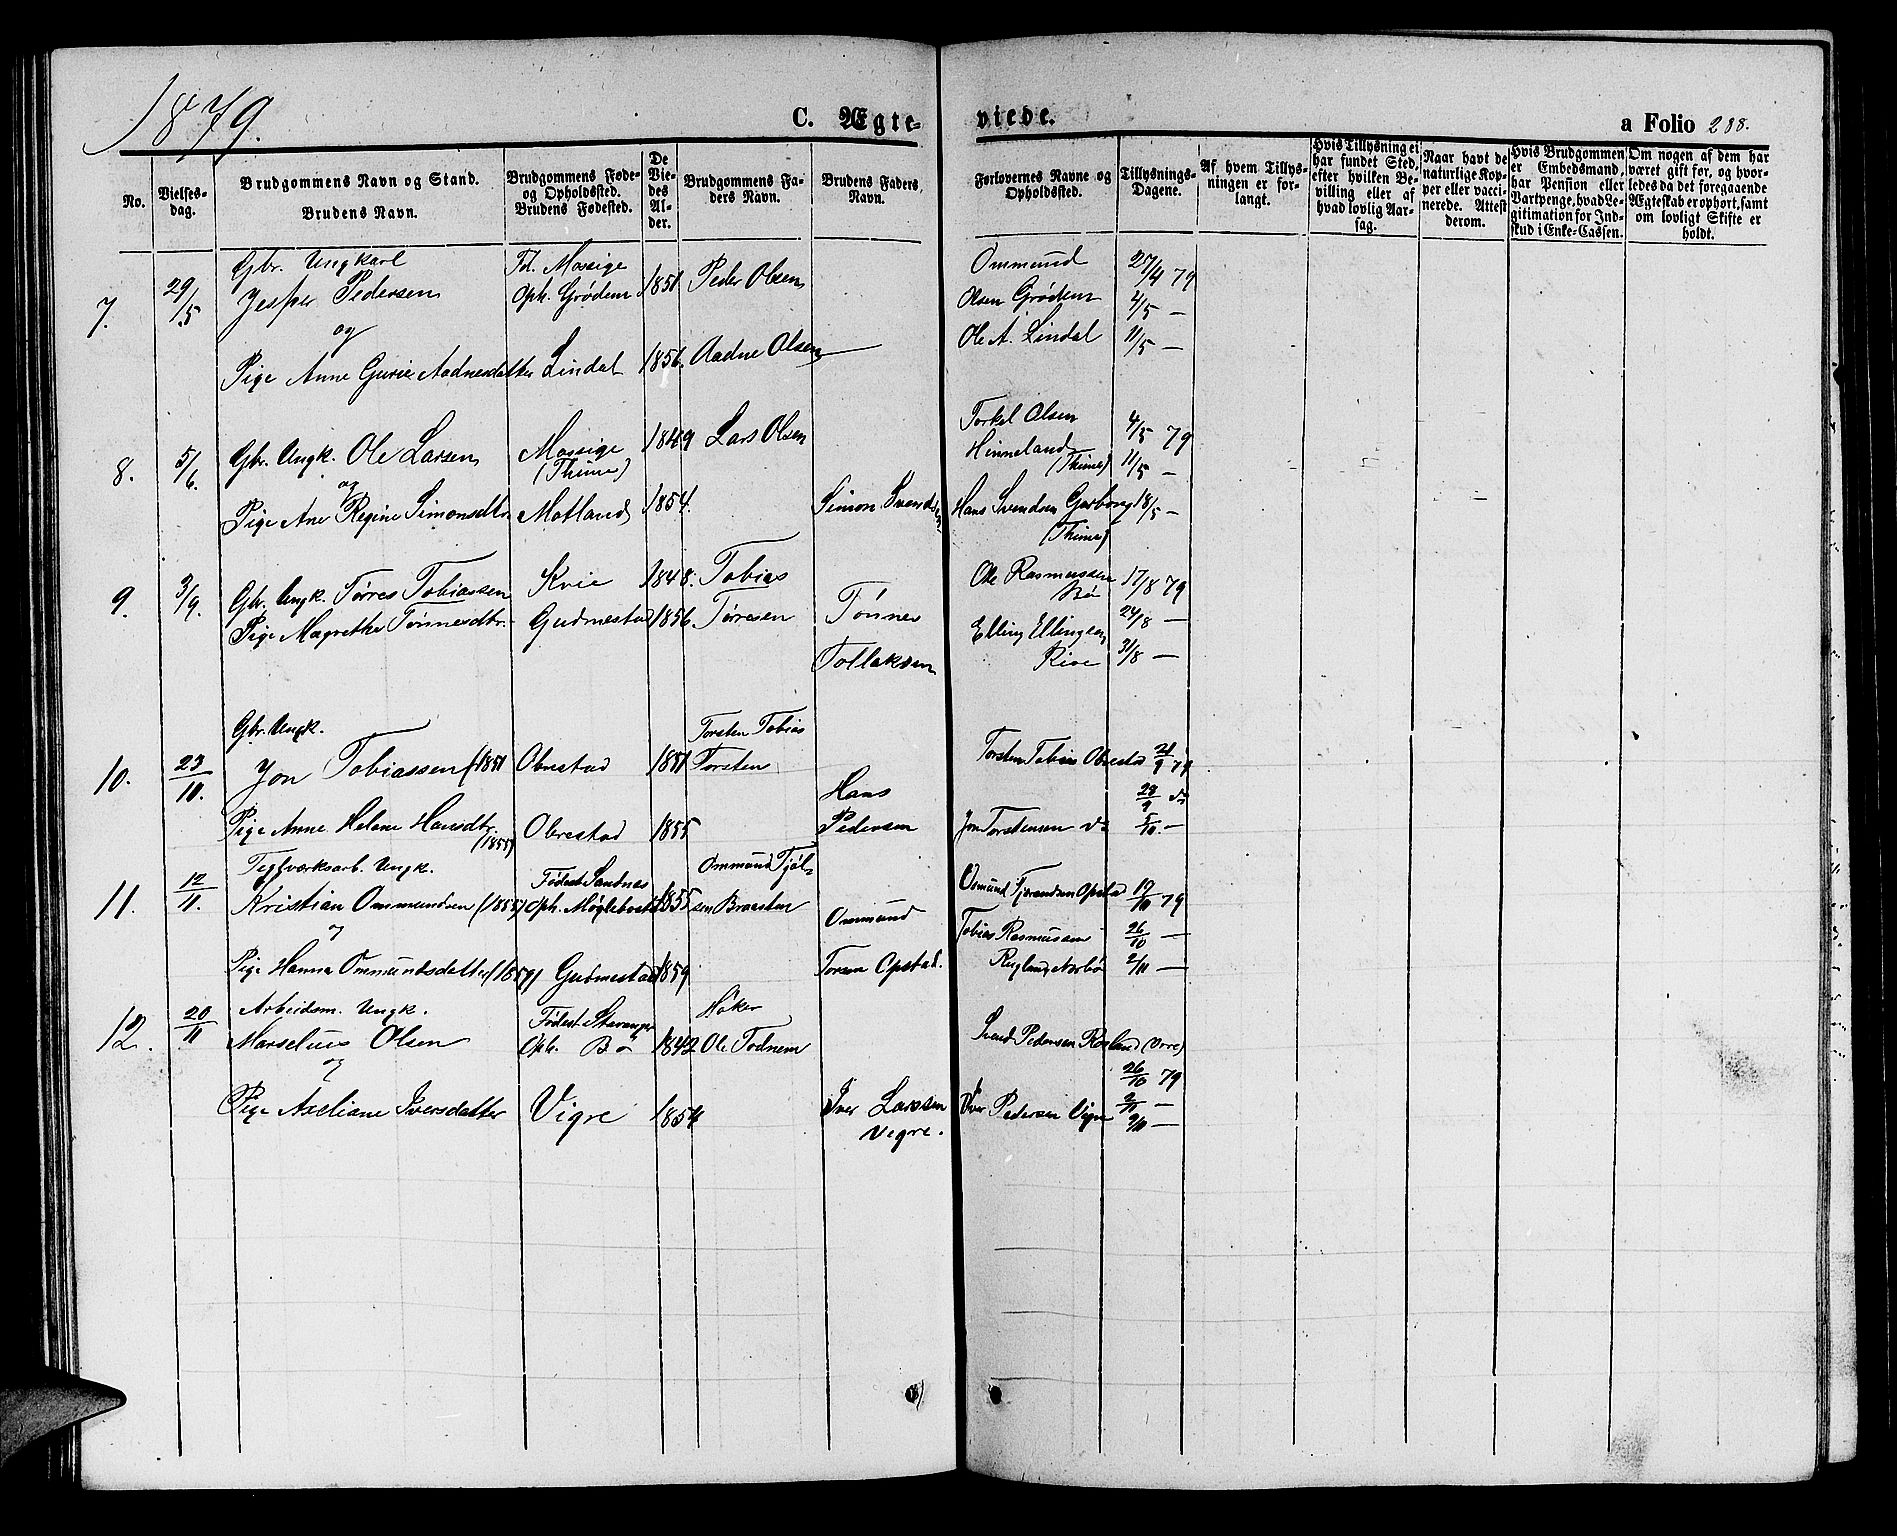 1879.
C. Ægte-
viede.
a Folio 288.
No.
Vielses-
dag.
Brudgommens Navn og Stand.
Brudens Navn.
Brudgommens Føde-
og Opholdssted.
Brudens Fødested.
De
Vie-
des
Al-
der.
Brudgommens Fa-
ders Navn.
Brudens Faders,
Navn.
Forlovernes Navne og
Opholdssted.
Tillysnings-
Dagene.
Af hvem Tillys-
ningen er for-
langt.
Hvis Tillysning ei
har fundet Sted,
efter hvilken Be-
villing eller af
hvad lovlig Aar-
sag.
Naar havt de
naturlige Kop-
per eller vacci-
nerede. Attest
derom.
Hvis Brudgommen
er Embedsmand,
har Pension eller
Vartpenge, hvad Le-
gitimation for Ind-
skud i Enke-Cassen.
Om nogen af dem har
været gift før, og hvor-
ledes da det foregaaende
Ægteskab er ophørt, samt
om lovligt Skifte er
holdt.
7. 29/5 Gbr. Ungkarl
Jesper Pedersen
Fd. Mossige
Oph. Grødem
1851 Peder Olsen
Ommund
Olsen Grødem
Ole A. Lindal
27/4 79
4/5 —
11/5 —
og
Pige Anne Gurie Aadnesdatter Lindal 1856. Aadne Olsen
8. 5/6. Gbr. Ungk. Ole Larsen Mossige
(Thime)
1849 Lars Olsen
Torkel Olsen
Hinneland
(Thime)
4/5 79
11/5 —
og
Pige Ane Regine Simonsdtr. Motland 1854. Simon Svendsen
Hans Svendsen Garborg 18/5 —
(Thime)
9. 3/9. Gbr. Ungk. Tørres Tobiassen Kvie 1848. Tobias
Tørresen
Ole Rasmussen
Bø
17/8 79
Pige Magrethe Tønnesdtr. Gudmestad 1856. Tønnes
Tollaksen
Elling Ellingsen
24/8 —
31/8 —
10. 23/10. Gbr. Ungk.
Jon Tobiassen (1851 Obrestad 1851 Torsten Tobias
Torsten
Torsten Tobias Obrestad 21/9 79
28/9 do
Pige Anne Helene Hansdtr.
(1855) Obrestad 1855 Hans
Pedersen
Jon Torstensen do 5/10. —
11. 12/11. Teglværksarb. Ungk.
Kristian Ommundsen (1855) Fødest. Sandnes
Oph. Møglebostad 1855 Ommund Tjøl-
sen Braasten
Osmund Tjerandsen Opstad 19/10 79
og
Tobias Rasmussen 26/10 —
Pige Hanna Ommundsdatter (1859) Gudmestad 1859 Ommund
Torsen Opstad.
Ruglang Nærbø 2/11 —
12. 20/11 Arbeidsm. Ungk.
Marselius Olsen
Fødest. Stavanger
Oph. Bø
1842 Høker
Ole Todnem
Svend Pedersen Rosland (Orre)
26/10 79
og
Pige Axeliane Iversdatter Vigre 1854 Iver Larssen
Vigre.
Iver Pedersen Vigre 2/11 —
9/11 —